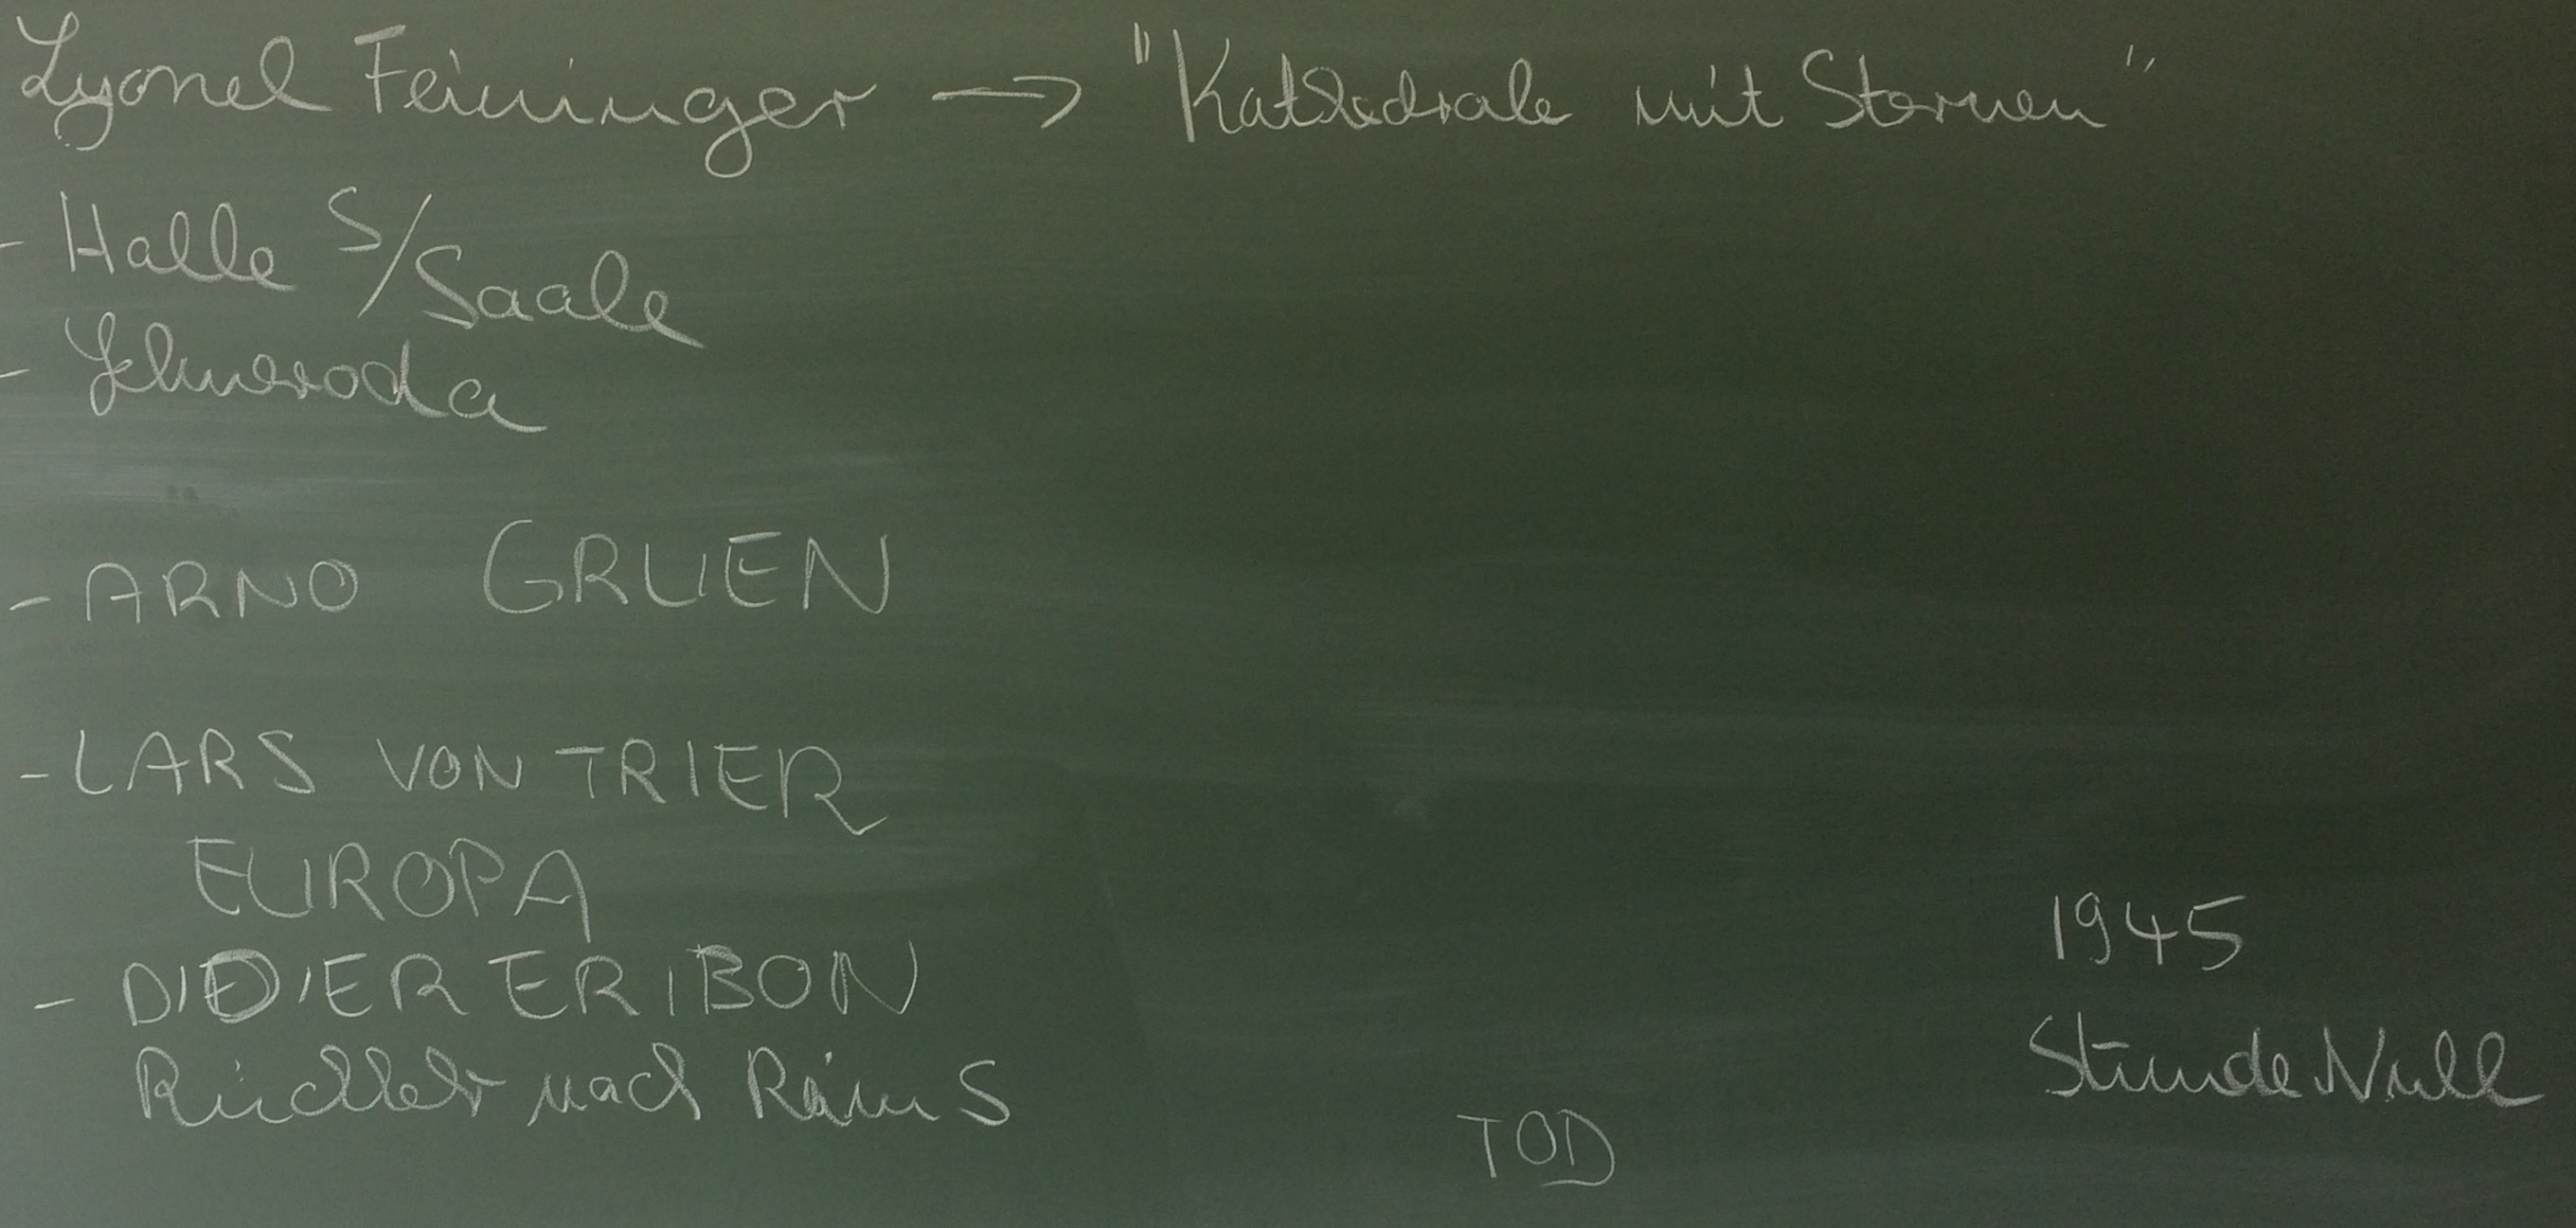 Lyonel Feininger → "Kathedrale mit Sternen"
- Halle S/Saale
- Jelmeroda
- ARNO GRUEN
- LARS VON TRIER
EUROPA
- DIDIER ERIBON
Rückkehr nach Reims
1945
Stunde Null
TOD